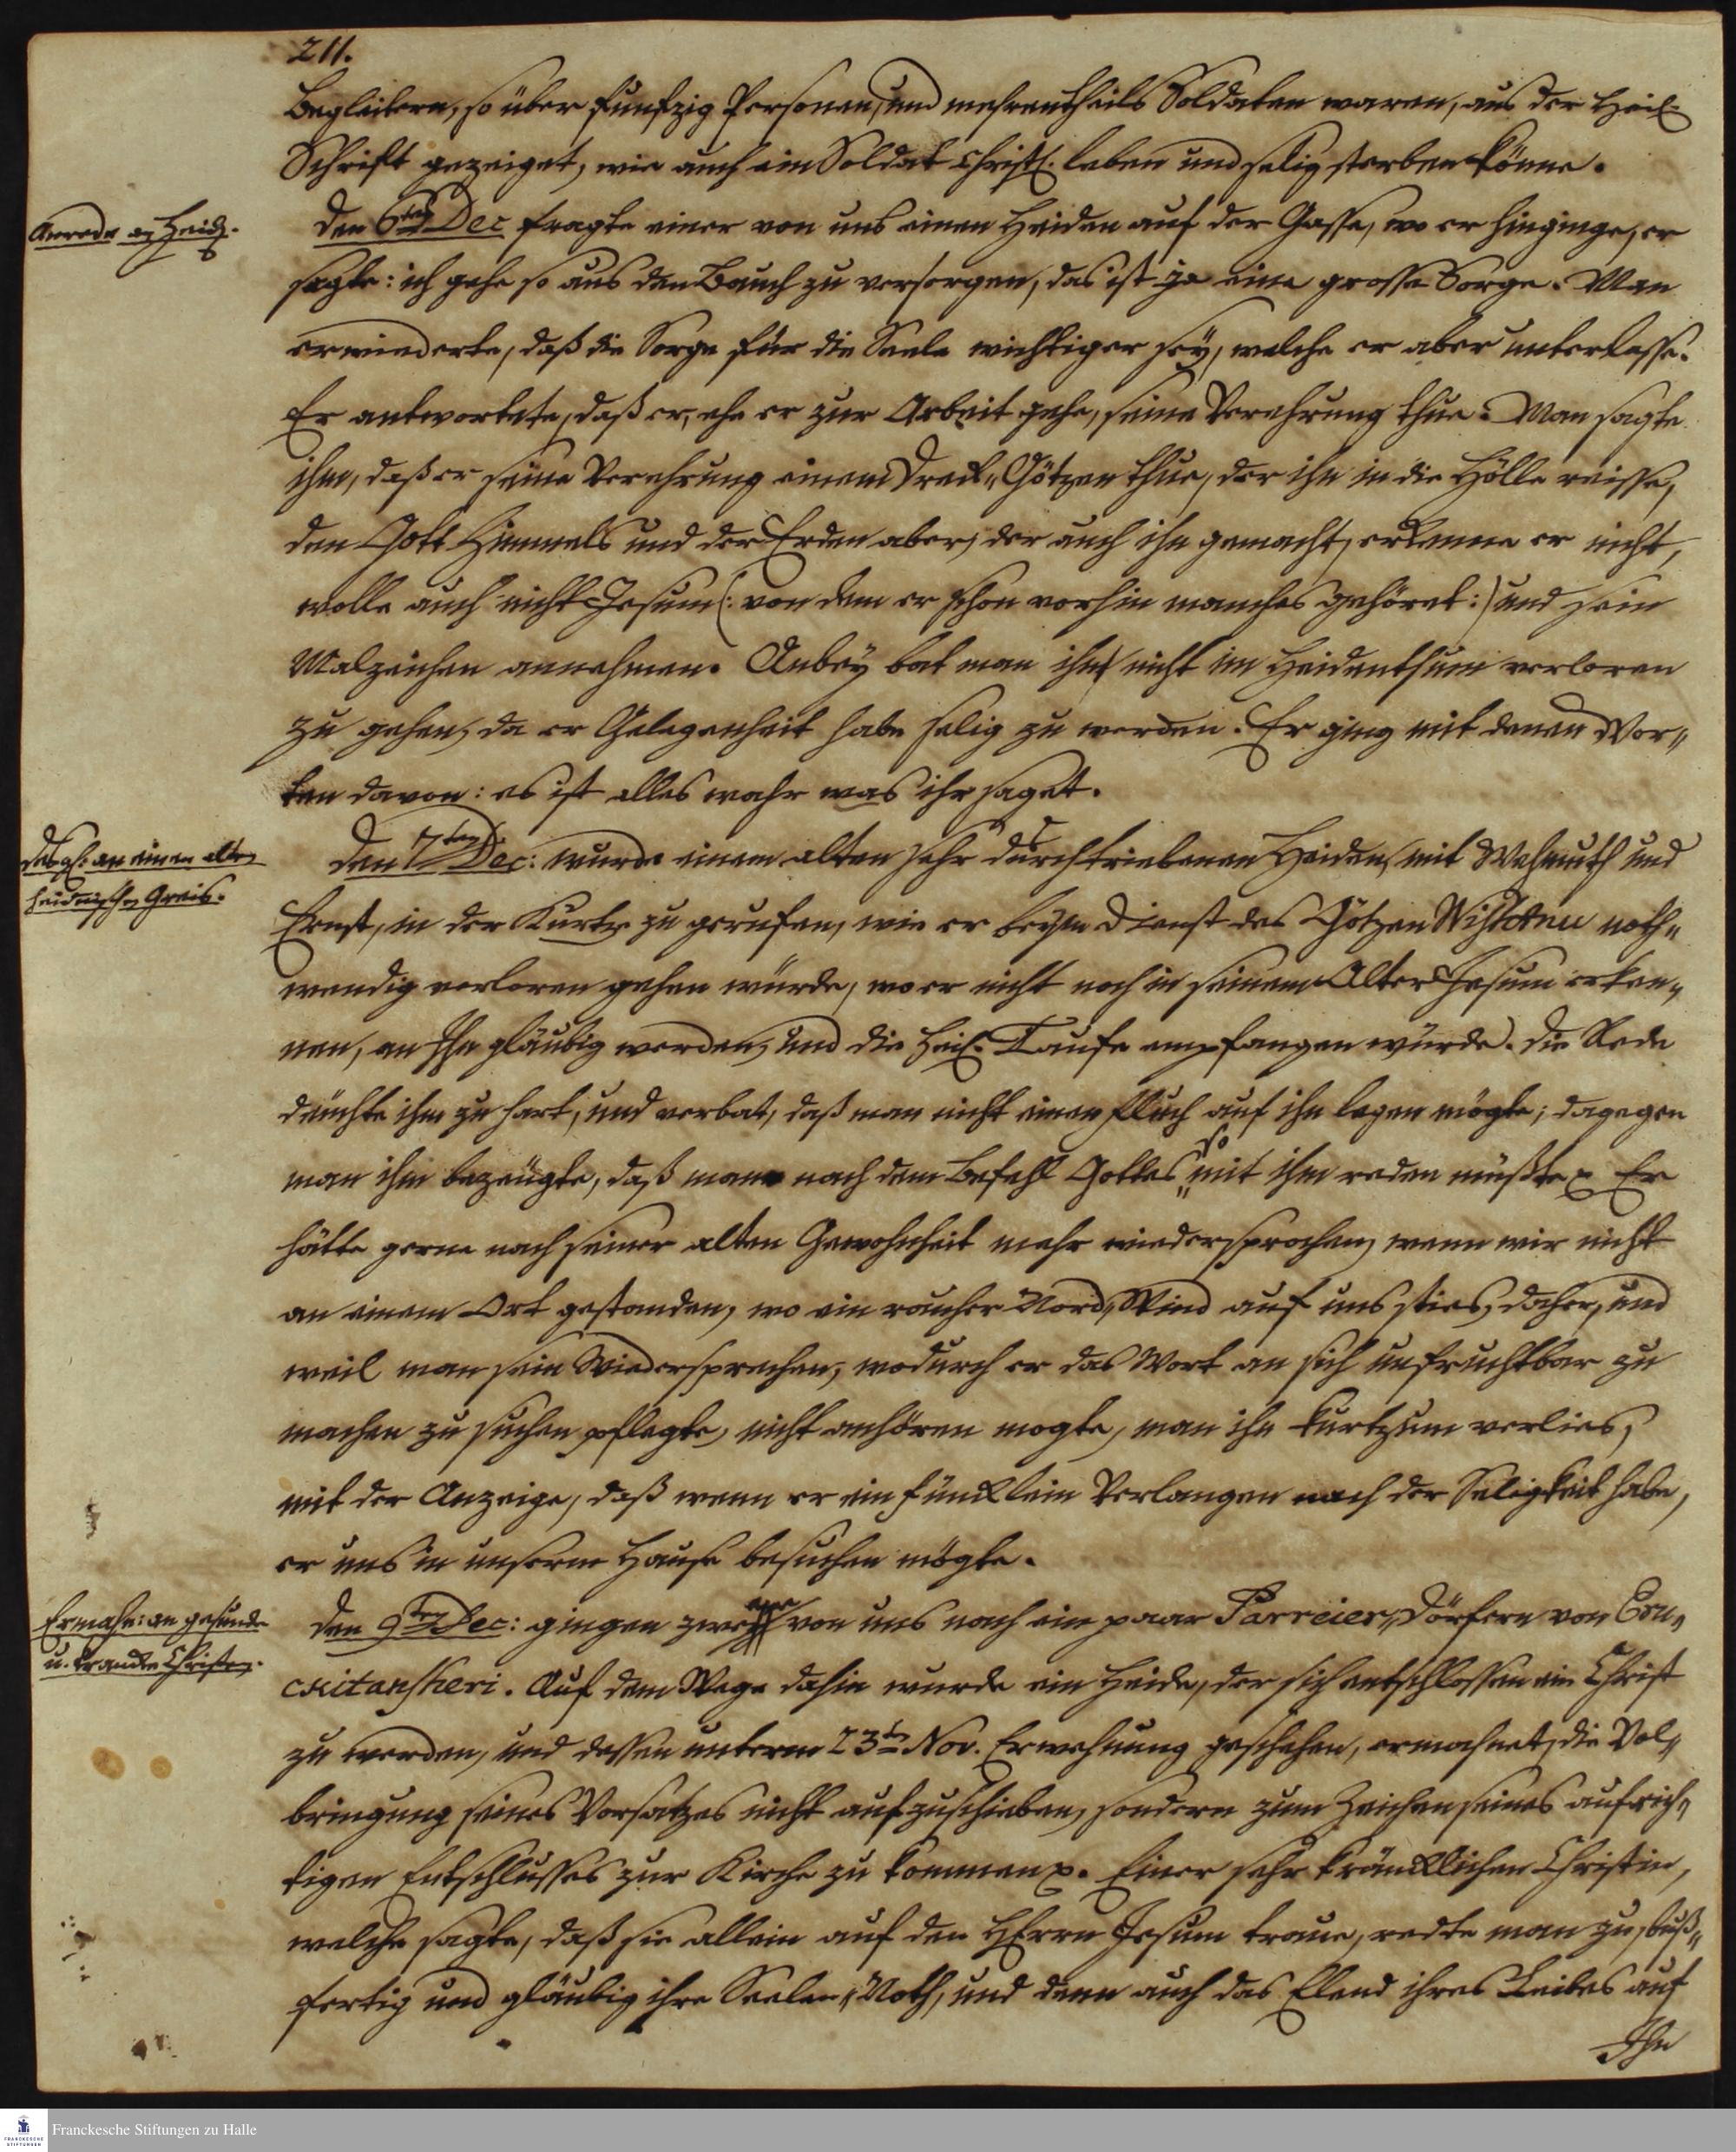 211.
Begleitern, so über funfzig Personen, und mehrentheils Soldaten waren, aus der Heil.
Schrift gezeiget, wie auch ein Soldat christl. leben und selig sterben könne.
Anrede an Heid.
Den 6ten Dec fragte einer von uns einen Heiden auf der Gasse, wo er hinginge, er
sagte: ich gehe so aus den Bauch zu versorgen, das ist ja eine grosse Sorge. Man
erwiederte, daß die Sorge für die Seele wichtiger sey, welche er aber unterlasse.
Er antwortete, daß er, ehe er zur Arbeit gehe, seine Verehrung thue. Man sagte
ihm, daß er seine Verehrung einem Dreck-Götzen thue, der ihn in die Hölle reisse,
den Gott Himmels und der Erden aber, der auch ihn gemacht, erkenne er nicht,
wolle auch nicht Jesum (: von dem er schon vorhin manches gehöret :) und sein
Malzeichen annehmen. Anbey bat man ihn nicht im Heidenthum verloren
zu gehen, da er Gelegenheit habe selig zu werden. Er ging mit denen Wor-
ten davon: es ist alles wahr was ihr saget.
Desgl: an einen alten
heidnischen Greis.
Den 7ten Dec: wurde einem alten sehr durchtriebenen Heiden, mit Wehmuth und
Ernst, in der Kürtze zu gerufen, wie er beym Dienst des Götzen Wischtnu noth-
wendig verloren gehen würde, wo er nicht noch in seinem Alter Jesum erken-
nen, an Ihn gläubig werden, und die Heil. Taufe empfangen würde. Die Rede
deuchte ihm zu hart, und verbat, daß man nicht einen Fluch auf ihn legen mögte; dagegen
man ihm bezeugte, daß man nach dem Befehl Gottes so mit ihm reden müßte p Er
hätte gerne nach seiner alten Gewohnheit mehr wiedersprochen, wenn wir nicht
an einem Ort gestanden, wo ein raucher Nord-Wind auf uns sties, daher, und
weil man sein Wiedersprechen, wodurch er das Wort an sich unfruchtbar zu
machen zu suchen pflegte, nicht anhören mogte, man ihn kurtzum verlies,
mit der Anzeige, daß wenn er ein Füncklein Verlangen nach der Seligkeit habe,
er uns in unserm Hause besuchen mögte.
Ermahn: an gesunde
u. krancke Christen.
Den 9ten Dec: gingen zween von uns nach ein paar Parreier-Dörfern von Eru-
cküttanscheri. Auf dem Wege dahin wurde ein Heide, der sich entschlossen ein Christ
zu werden, und dessen unterm 23ten Nov. Erwehnung geschehen, ermahnet, die Vol-
bringung seines Vorsatzes nicht aufzuschieben, sondern zum Zeichen seines aufrich-
tigen Entschlusses zur Kirche zu kommen p. Einer sehr kräncklichen Christin,
welche sagte, daß sie allein auf den HErrn Jesum traue, redte man zu, buß-
fertig und gläubig ihre Seelen-Noth, und denn auch das Elend ihres Leibes auf
Ihn
FRANCKESCHE STIFTUNGEN
Franckesche Stiftungen zu Halle